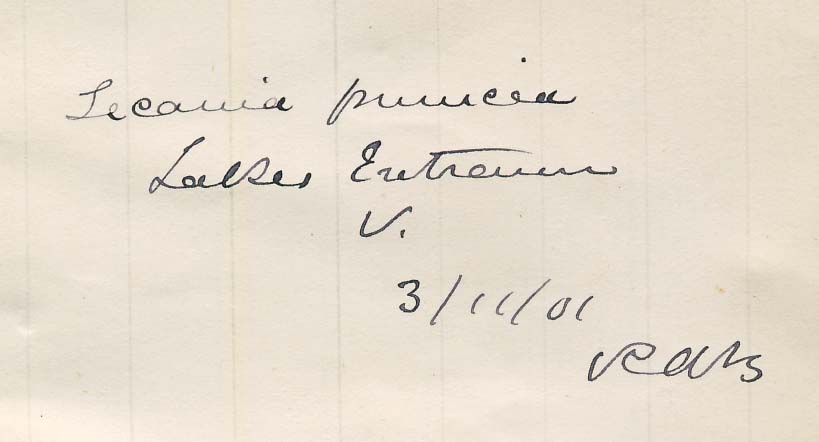 Lecania punicea
Lakes Entrance
V.
3/11/01
RAB